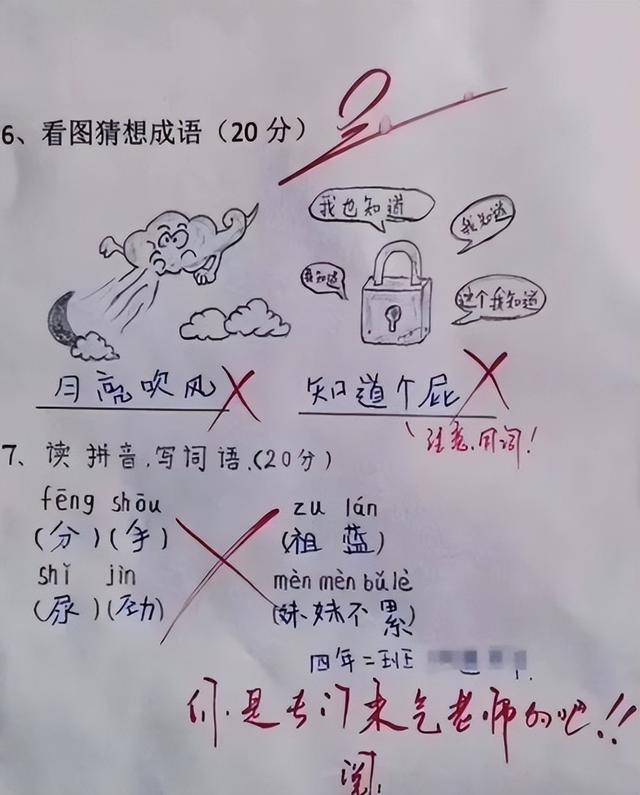 6、看图猜想成语（20 分）
我也知道
我知道
我知道
这个我知道
月亮吹风 知道个屁
注意用词！
7、读拼音,写词语.(20分)
fēng shōu zu lán
(分)(手) (祖 蓝)
shǐ jìn mèn mèn bǔ lè
(尿)(劲) (妹妹不累)
四年二班
你是专门来气老师的吧!!